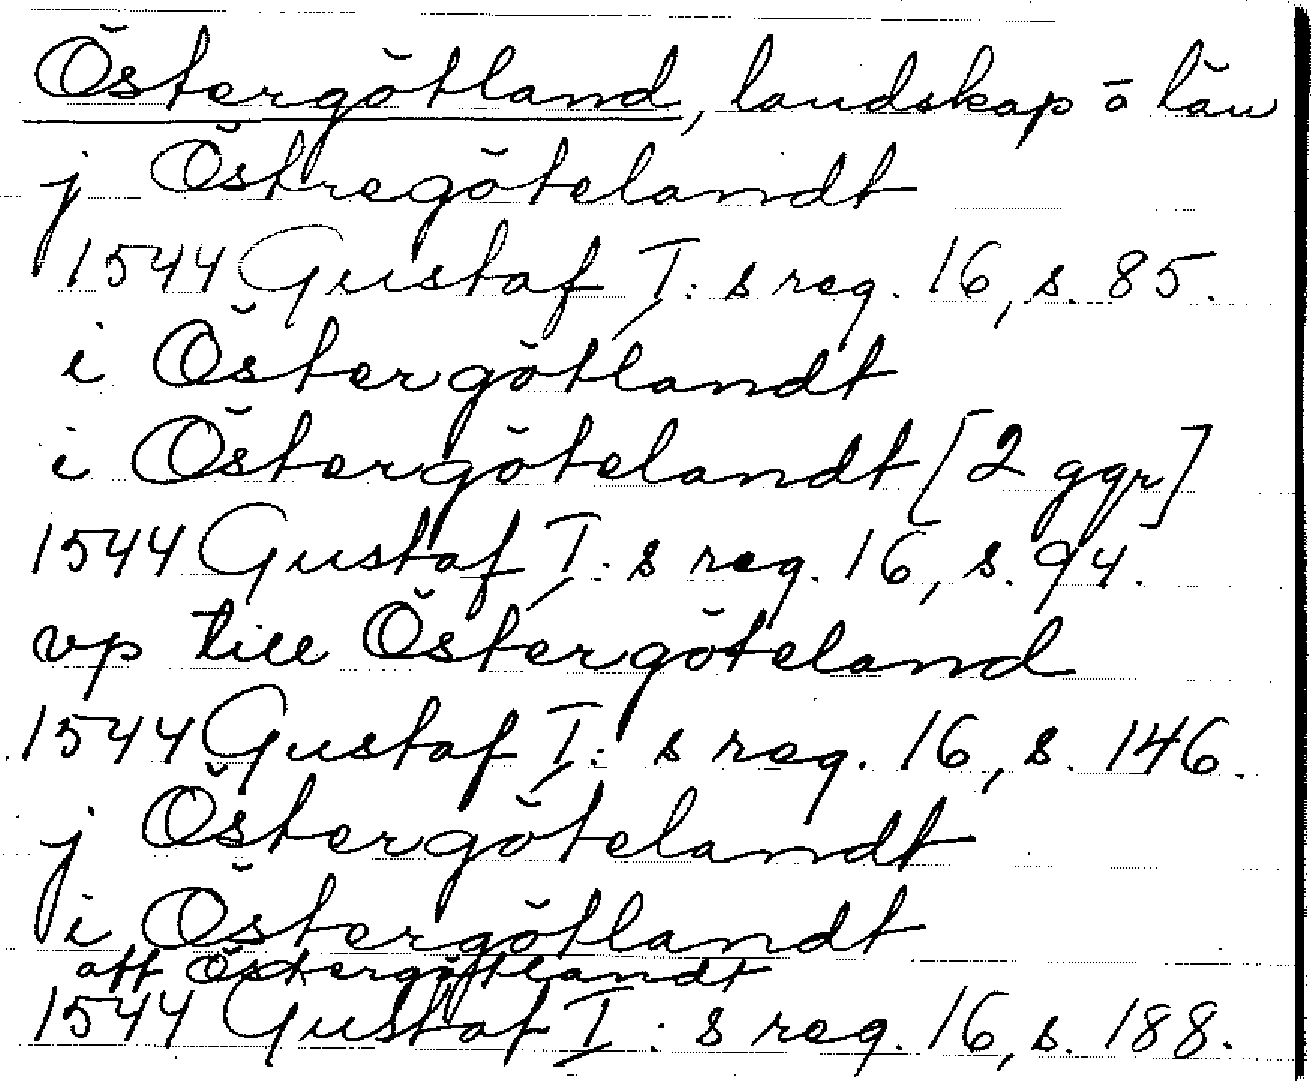 Östergötland, landskap o län
j Östregötelandt
1544 Gustaf I: s reg. 16, s. 85.
i Östergötlandt
i Östergötelandt [2 ggr]
1544 Gustaf I: s reg. 16, s. 94.
vp till Östergöteland
1544 Gustaf I: s reg. 16, s. 146.
j Östergötelandt
i Östergötlandt
aff Östergötlandt
1544 Gustaf I: s reg. 16, s. 188.